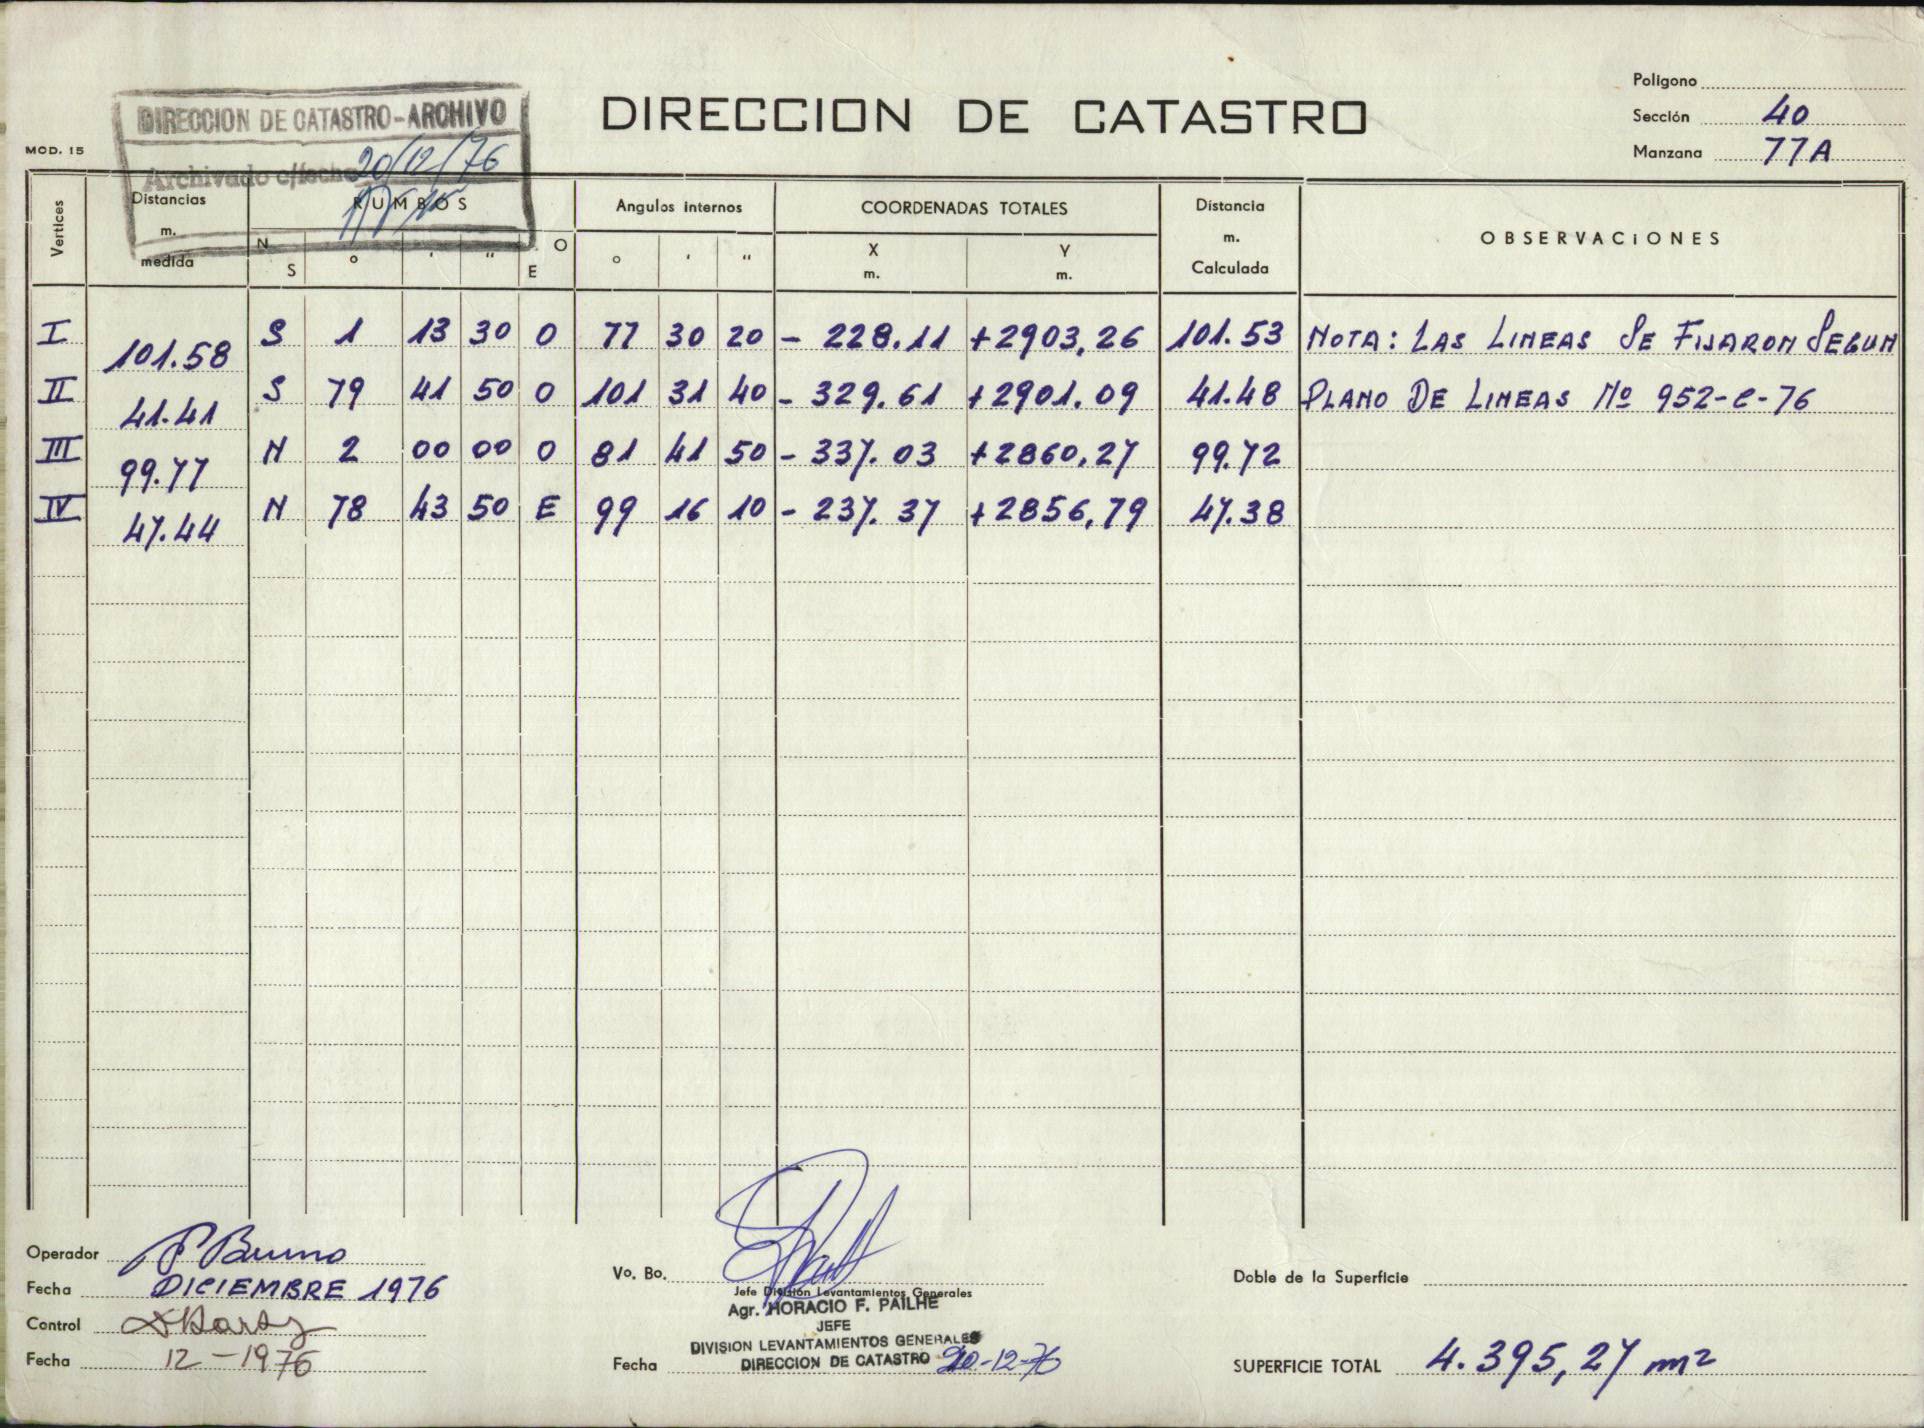 DIRECCION DE CATASTRO-ARCHIVO
Archivado c/fecha 20/12/76
DIRECCION DE CATASTRO
Polígono
Sección 40
Manzana 77A
MOD. 15
Vertices Distancias m. medida RUMBOS Angulos internos COORDENADAS TOTALES Distancia m. Calculada OBSERVACIONES
N S ° ' " O E ° ' " X m. Y m.
I 101.58 S 1 13 30 O 77 30 20 - 228.11 +2903,26 101.53 NOTA: LAS LINEAS SE FIJARON SEGUN
II 41.41 S 79 41 50 O 101 31 40 - 329.61 +2901.09 41.48 PLANO DE LINEAS Nº 952-C-76
III 99.77 N 2 00 00 O 81 41 50 - 337.03 +2860,27 99.72
IV 47.44 N 78 43 50 E 99 16 10 - 237.37 +2856,79 47.38
Operador Bruno
Fecha DICIEMBRE 1976
Control
Fecha 12-1976
Vo. Bo.
Jefe División Levantamientos Generales
Agr. HORACIO F. PAILHE
JEFE
DIVISION LEVANTAMIENTOS GENERALES
DIRECCION DE CATASTRO
Fecha 20-12-76
Doble de la Superficie
SUPERFICIE TOTAL 4.395,27 m²